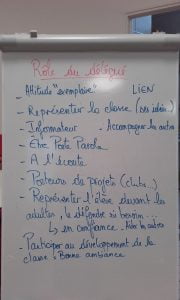 Rôle du délégué
- Attitude "exemplaire" LIEN
- Représenter la classe (ses idées)
- Informateur . Accompagner les autres
- Être Porte Parole
- A l'écoute
- Porteurs de projets (clubs...)
- Représenter l'élève devant les
adultes, le défendre si besoin...
↳ en confiance . Aider les autres
- Participer au développement de la
classe. Bonne ambiance